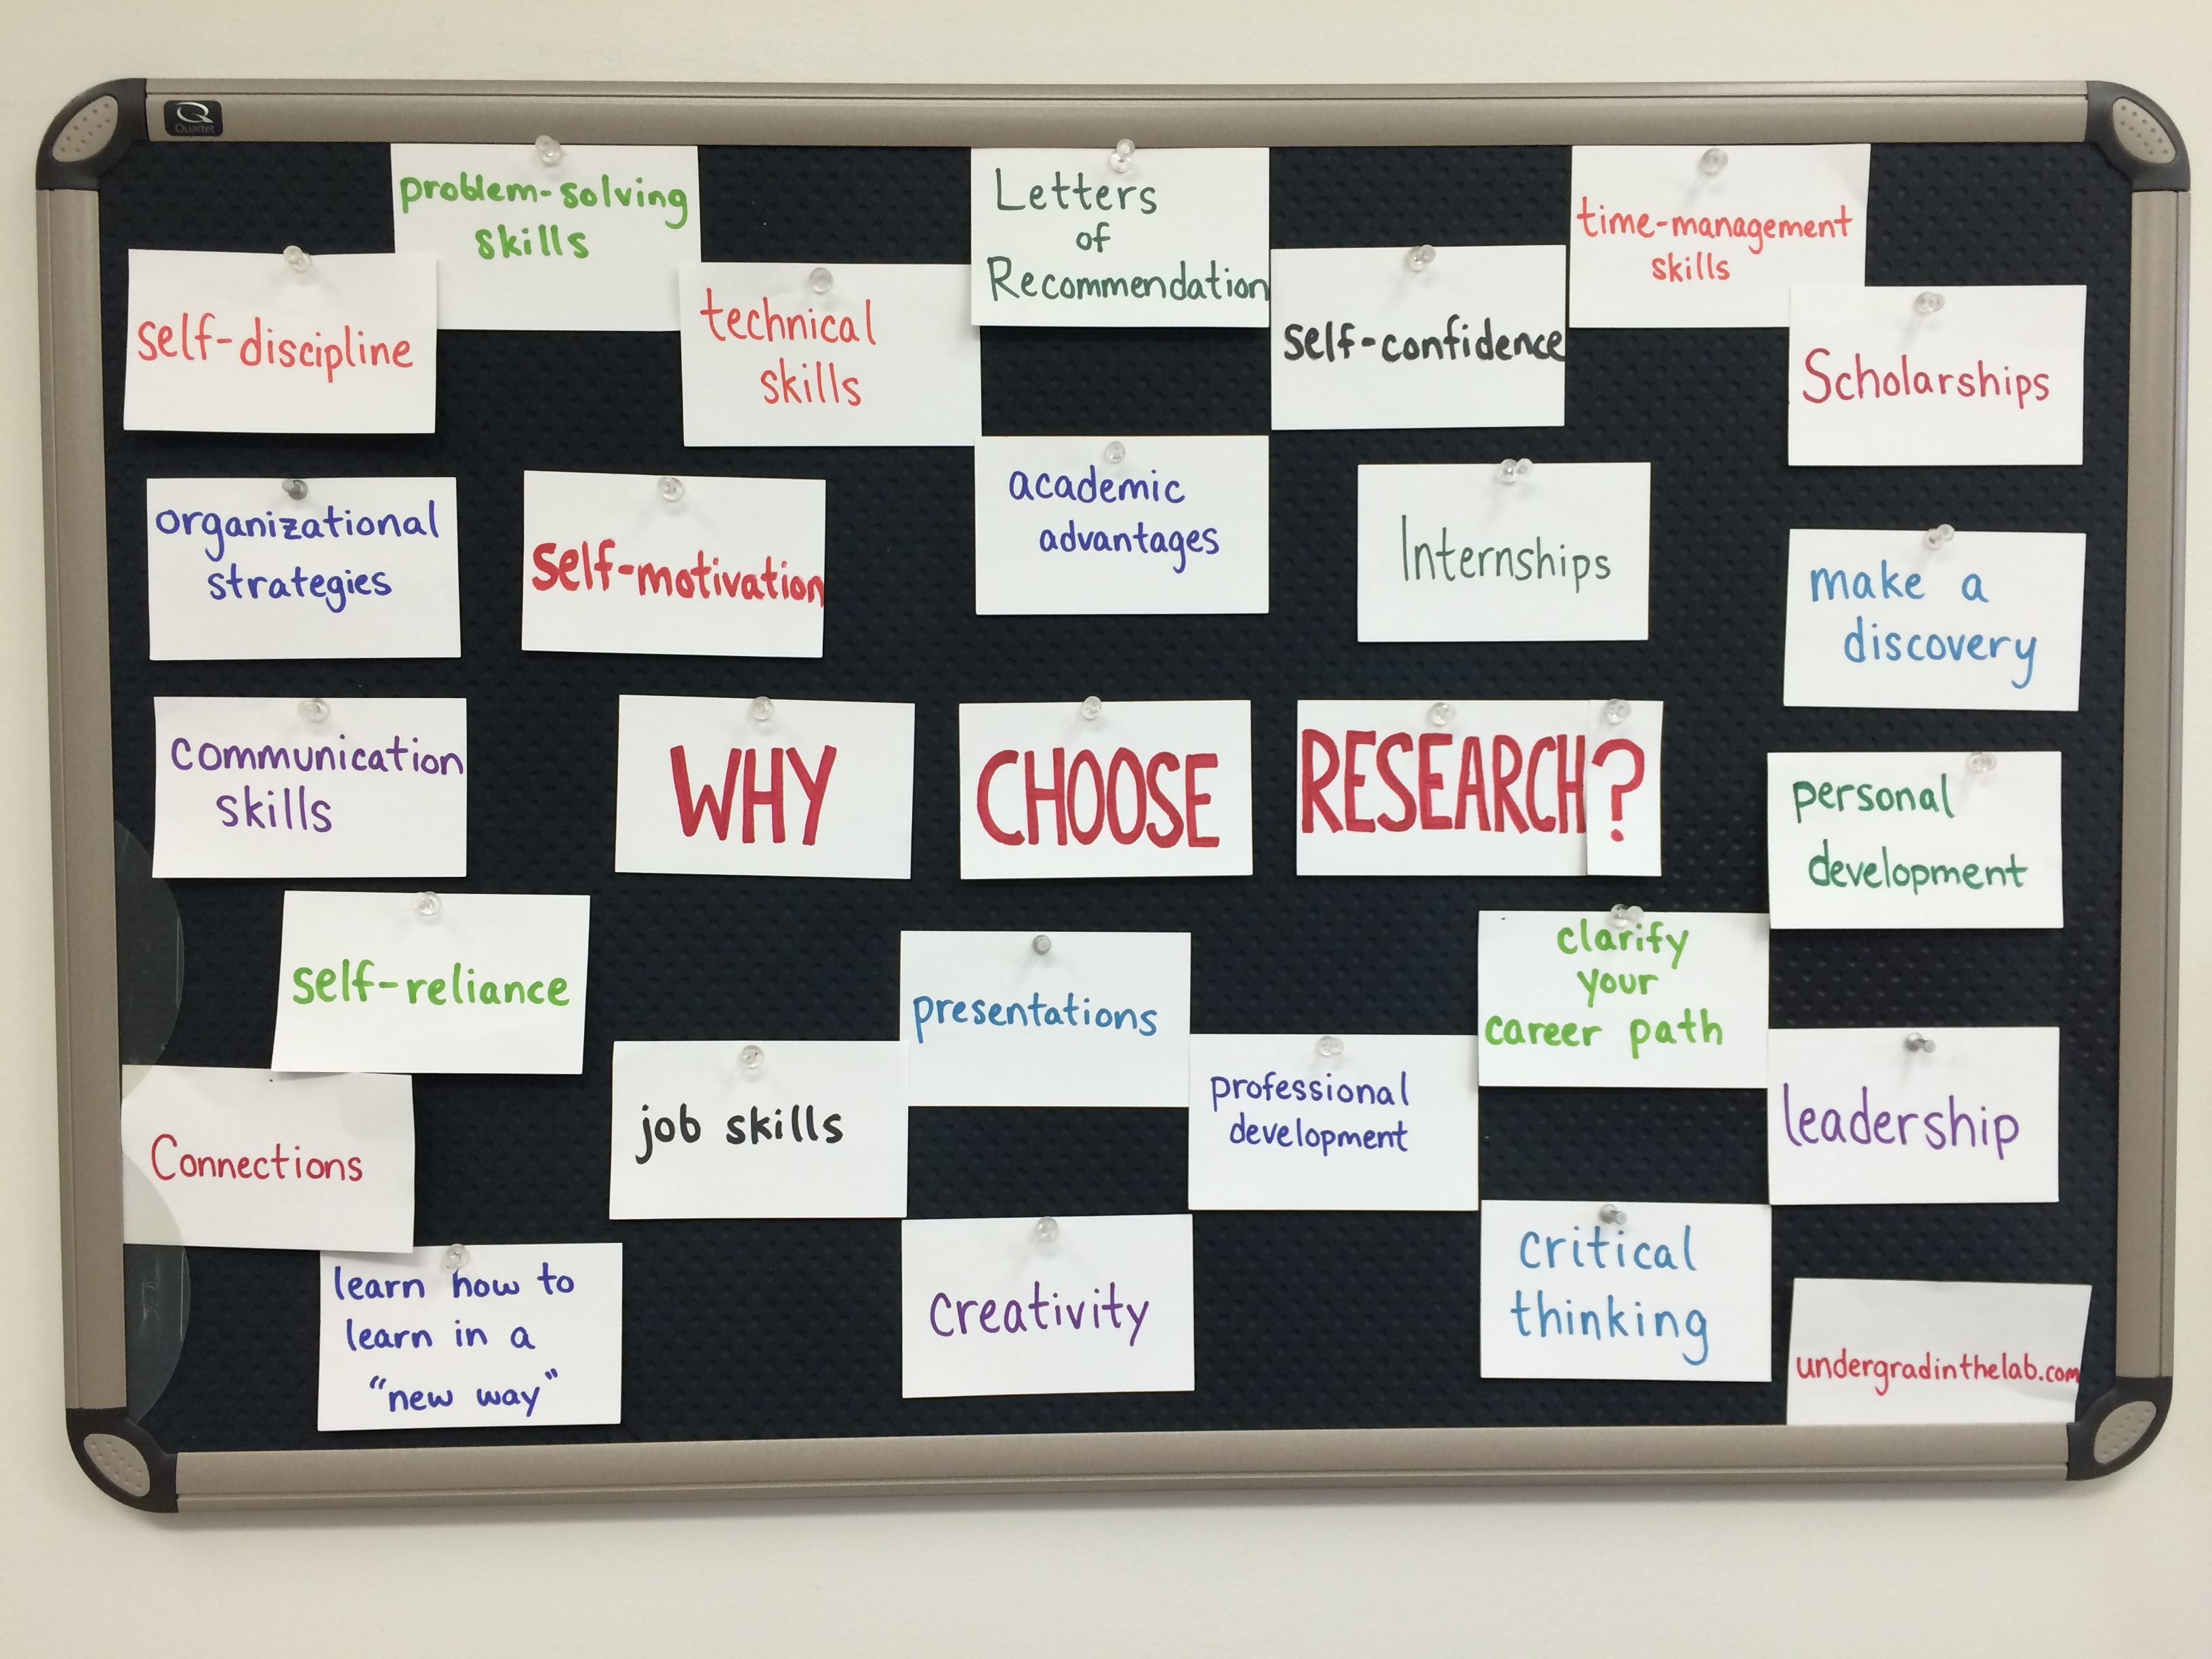 Quartet
problem-solving
skills
Letters
of
Recommendation
time-management
skills
self-discipline
technical
skills
self-confidence
Scholarships
organizational
strategies
self-motivation
academic
advantages
Internships
make a
discovery
communication
skills
WHY CHOOSE RESEARCH?
personal
development
self-reliance
presentations
clarify
your
career path
Connections
job skills
professional
development
leadership
learn how to
learn in a
"new way"
creativity
critical
thinking
undergradinthelab.com